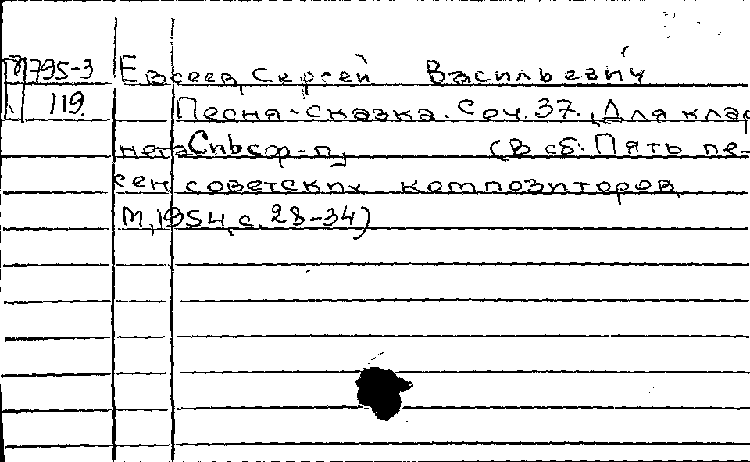 М795-3 Евсеев, Сергей Васильевич
119. Песня-сказка. Соч. 37. Для клар
нета С ф-п, (В сб: Пять пе-
сен советских композиторов
М, 1954, с. 28-34)